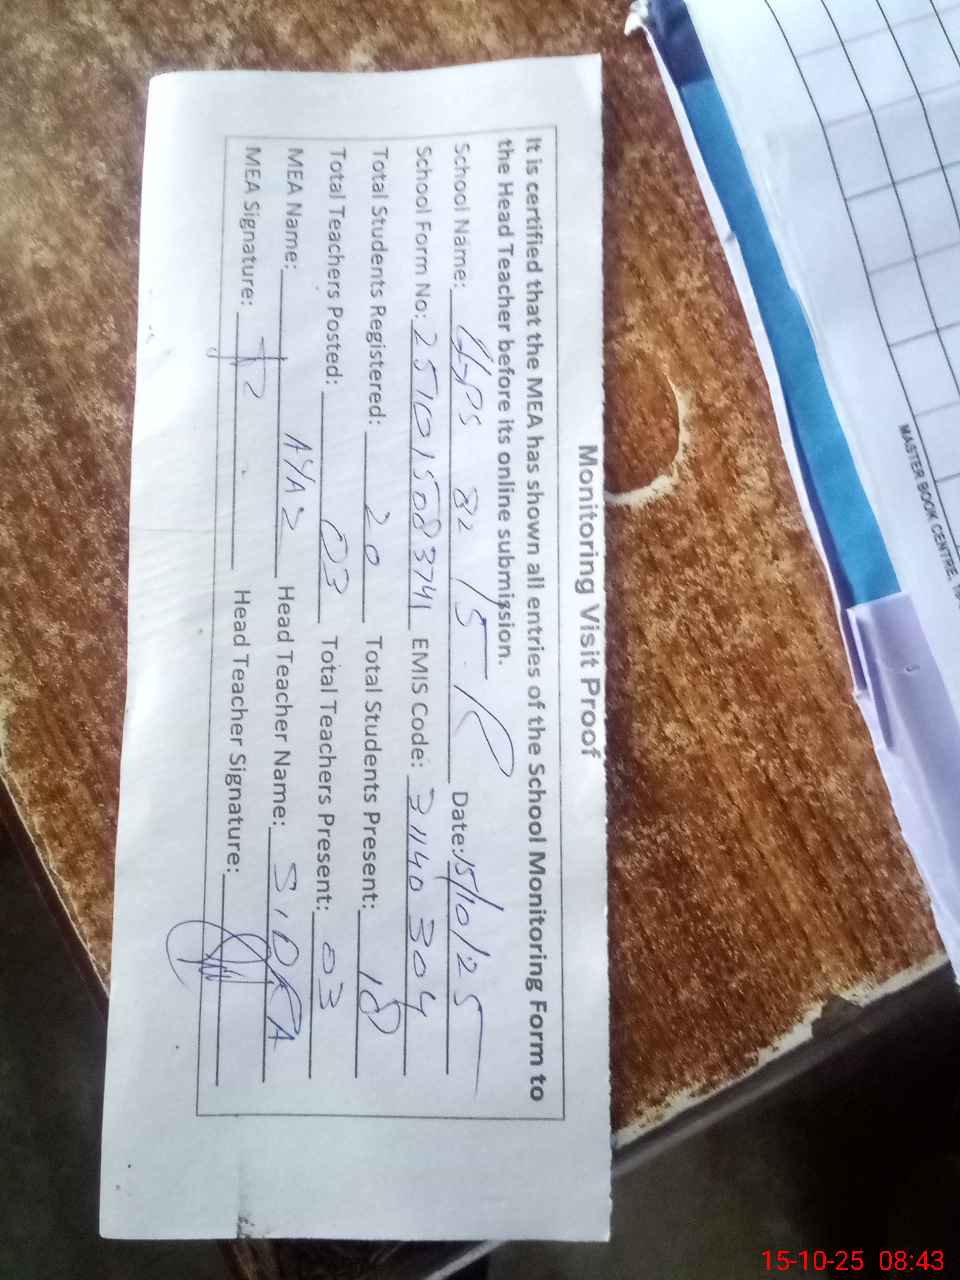 Monitoring Visit Proof
It is certified that the MEA has shown all entries of the School Monitoring Form to
the Head Teacher before its online submission.
School Name: GPS 82 15-R Date: 15/10/25
School Form No: 251015083741 EMIS Code: 31140304
Total Students Registered: 20 Total Students Present: 18
Total Teachers Posted: 03 Total Teachers Present: 03
MEA Name: AYAZ Head Teacher Name: SIDRA
MEA Signature: Head Teacher Signature:
MASTER BOOK CENTRE,
15-10-25 08:43